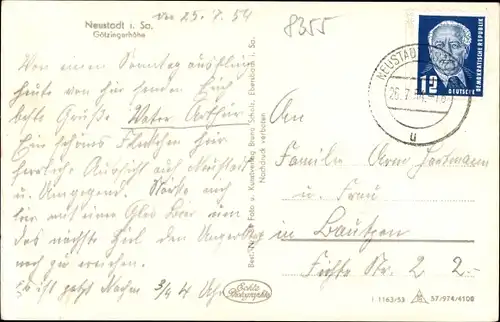 Neustadt i. Sa.
Götzingerhöhe
den 25.7.54
8355
Von einem Sonntag ausflug
heute von hier senden Euch
beste Grüße. Vater Arthur
Ein schönes Fleckchen hier
herrliche Aussicht auf Neustadt
u. Umgegend.
hier mit einem Glas Bier um
das nächste Ziel den Unger
noch zu erreichen.
ist jetzt Nachm 3/4 4 Uhr
Echte Photographie
Foto u. Kunstverlag Bruno Scholz, Ebersbach i. Sa.
Nachdruck verboten
NEUSTADT
26.7.54.-18
u
12
DEUTSCHE
DEMOKRATISCHE REPUBLIK
An
Familie Arno Hartmann
u. Frau
in Bautzen
Fichte Str. 22.-
1163-53 57/974/4108